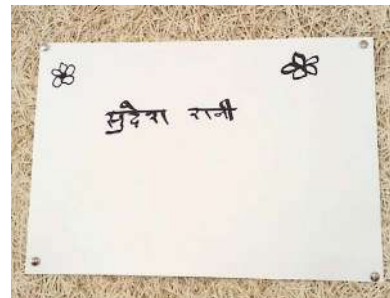 सुदेश रानी